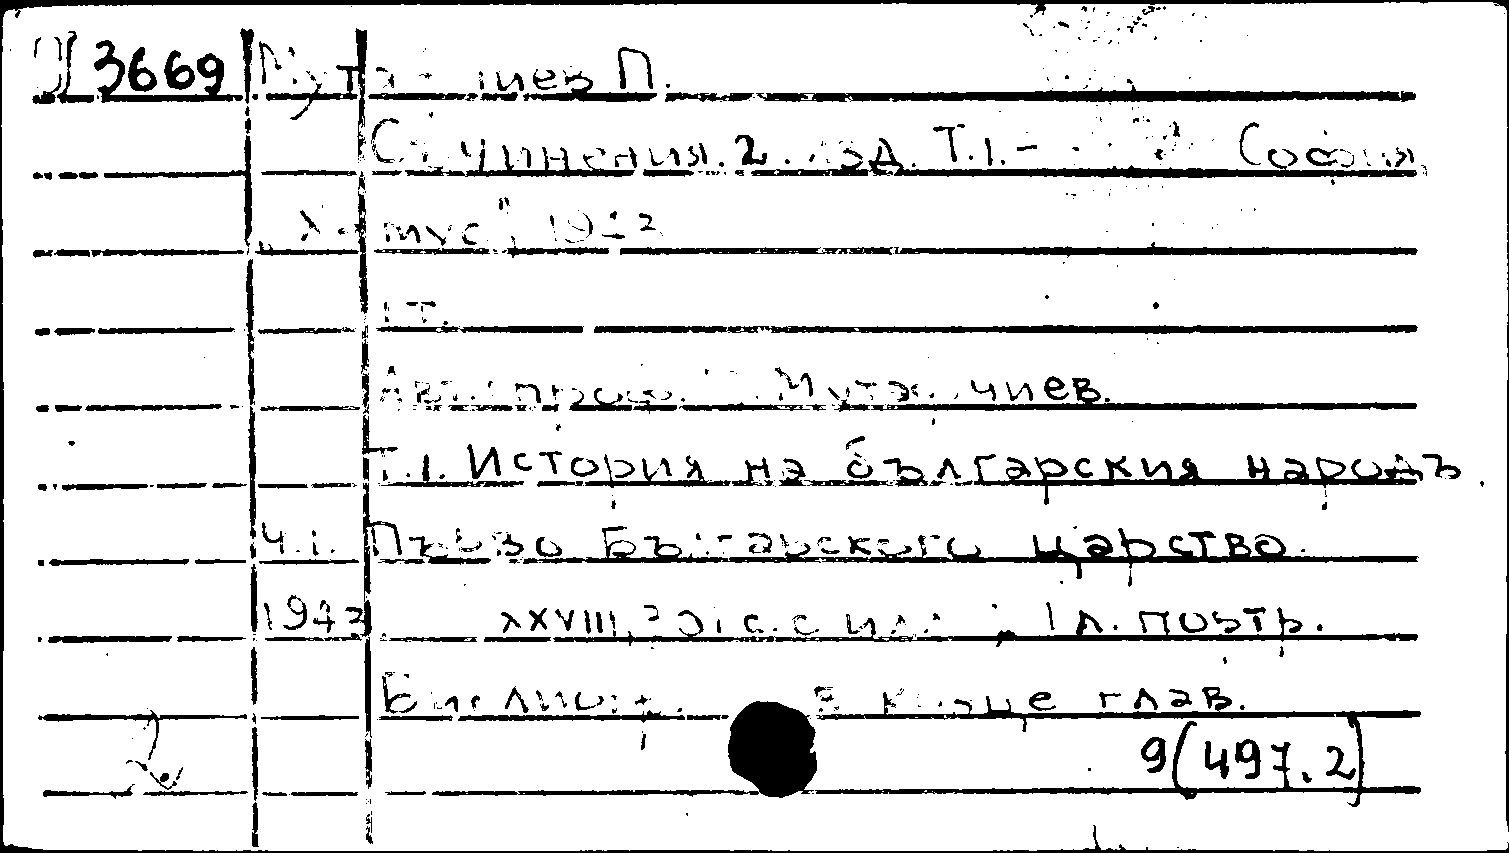 3669 Мутафчиев П.
Съчинения. 2. изд. Т.1.- София,
„Хемус", 1943
1 т.
Авт.: проф. П. Мутафчиев.
Т.1. История на българския народъ.
Ч.1. Първо Българского царство.
1943. XXVIII, с. с илл.; 1 л. портр.
Библиогр. в конце глав.
9(497.2)